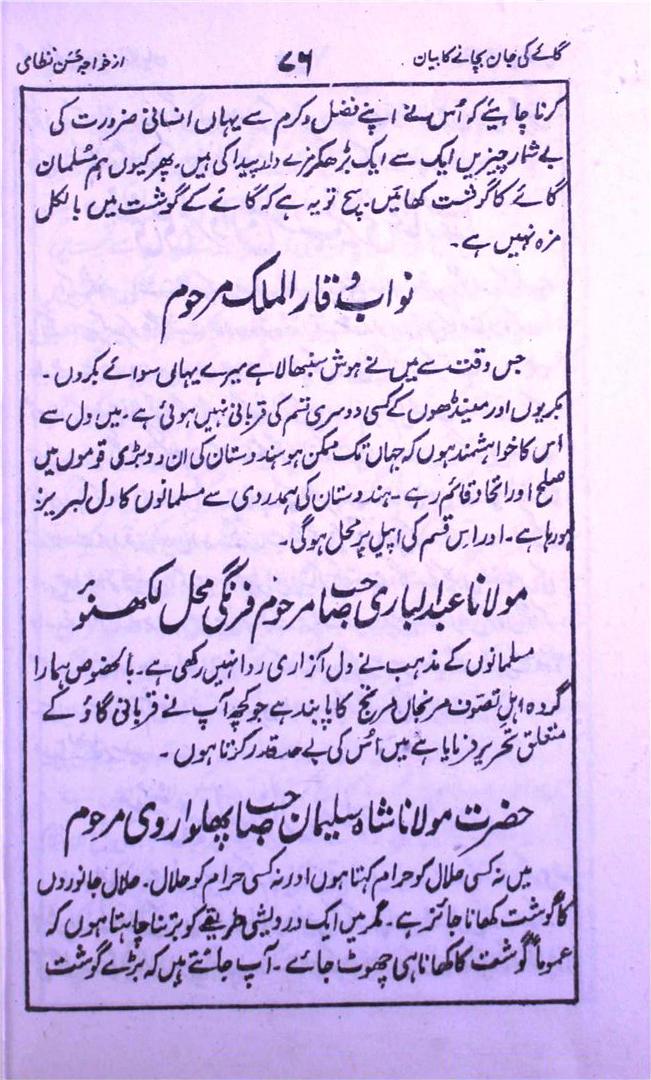 گائے کی جان بچانے کا بیان ۷۶ از خواجہ حسن نظامی
کرنا چاہیئے کہ اُس نے اپنے فضل و کرم سے یہاں انسانی ضرورت کی
بے شمار چیزیں ایک سے ایک بڑھکر مزے دار پیدا کی ہیں۔ پھر کیوں ہم مسلمان
گائے کا گوشت کھائیں۔ سچ تو یہ ہے کہ گائے کے گوشت میں بالکل
مزہ نہیں ہے۔
نواب وقار الملک مرحوم
جس وقت سے میں نے ہوش سنبھالا ہے میرے یہاں سوائے بکروں۔
بکریوں اور مینڈھوں کے کسی دوسری قسم کی قربانی نہیں ہوئی ہے۔ میں دل سے
اس کا خواہشمند ہوں کہ جہاں تک ممکن ہو ہندوستان کی ان دو بڑی قوموں میں
صلح اور اتحاد قائم رہے۔ ہندوستان کی ہمدردی سے مسلمانوں کا دل لبریز
ہو رہا ہے۔ اور اس قسم کی اپیل بر محل ہوگی۔
مولانا عبدالباری صاحب مرحوم فرنگی محل لکھنؤ
مسلمانوں کے مذہب نے دل آزاری روا نہیں رکھی ہے۔ بالخصوص ہمارا
گروہ اہلِ تصوف مرنجاں مرنج کا پابند ہے جو کچھ آپ نے قربانی گاؤ کے
متعلق تحریر فرمایا ہے میں اُس کی بے حد قدر کرتا ہوں۔
حضرت مولانا شاہ سلیمان صاحب پھلواروی مرحوم
میں نہ کسی حلال کو حرام کہتا ہوں اور نہ کسی حرام کو حلال۔ حلال جانوروں
کا گوشت کھانا جائز ہے۔ مگر میں ایک درویشی طریقے کو برتنا چاہتا ہوں کہ
عموماً گوشت کا کھانا ہی چھوٹ جائے۔ آپ جانتے ہیں کہ بڑے گوشت